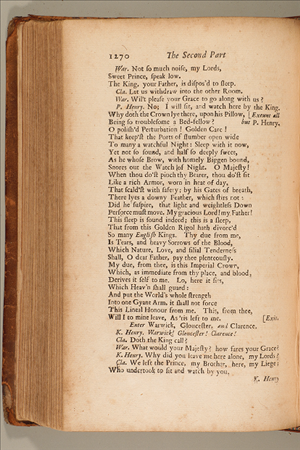 1270 The Second Part
War. Not so much noise, my Lords,
Sweet Prince, speak low.
The King, your Father, is dispos'd to sleep.
Cla. Let us withdraw into the other Room.
War. Will't please your Grace to go along with us?
P. Henry. No; I will sit, and watch here by the King.
Why doth the Crown lye there, upon his Pillow, [Exeunt all
Being so troublesome a Bed-fellow? but P. Henry.
O polish'd Perturbation! Golden Care!
That keep'st the Ports of slumber open wide
To many a watchful Night: Sleep with it now,
Yet not so sound, and half so deeply sweet,
As he whose Brow, with homely Biggen bound,
Snores out the Watch of Night. O Majesty!
When thou do'st pinch thy Bearer, thou do'st sit
Like a rich Armor, worn in heat of day,
That scald'st with safety; by his Gates of breath,
There lyes a downy Feather, which stirs not:
Did he suspire, that light and weightless Down
Perforce must move. My gracious Lord! my Father!
This sleep is sound indeed; this is a sleep,
That from this Golden Rigol hath divorc'd
So many English Kings. Thy due from me,
Is Tears, and heavy Sorrows of the Blood,
Which Nature, Love, and filial Tenderness
Shall, O dear Father, pay thee plenteously.
My due, from thee, is this Imperial Crown,
Which, as immediate from thy place, and blood,
Derives it self to me. Lo, here it sits,
Which Heav'n shall guard:
And put the World's whole strength
Into one Gyant Arm, it shall not force
This Lineal Honour from me. This, from thee,
Will I to mine leave, As 'tis left to me. [Exit.
Enter Warwick, Gloucester, and Clarence.
K. Henry. Warwick! Gloucester! Clarence!
Cla. Doth the King call?
War. What would your Majesty? how fares your Grace?
K. Henry. Why did you leave me here alone, my Lords?
Cla. We left the Prince, my Brother, here, my Liege:
Who undertook to sit and watch by you.
K. Henry